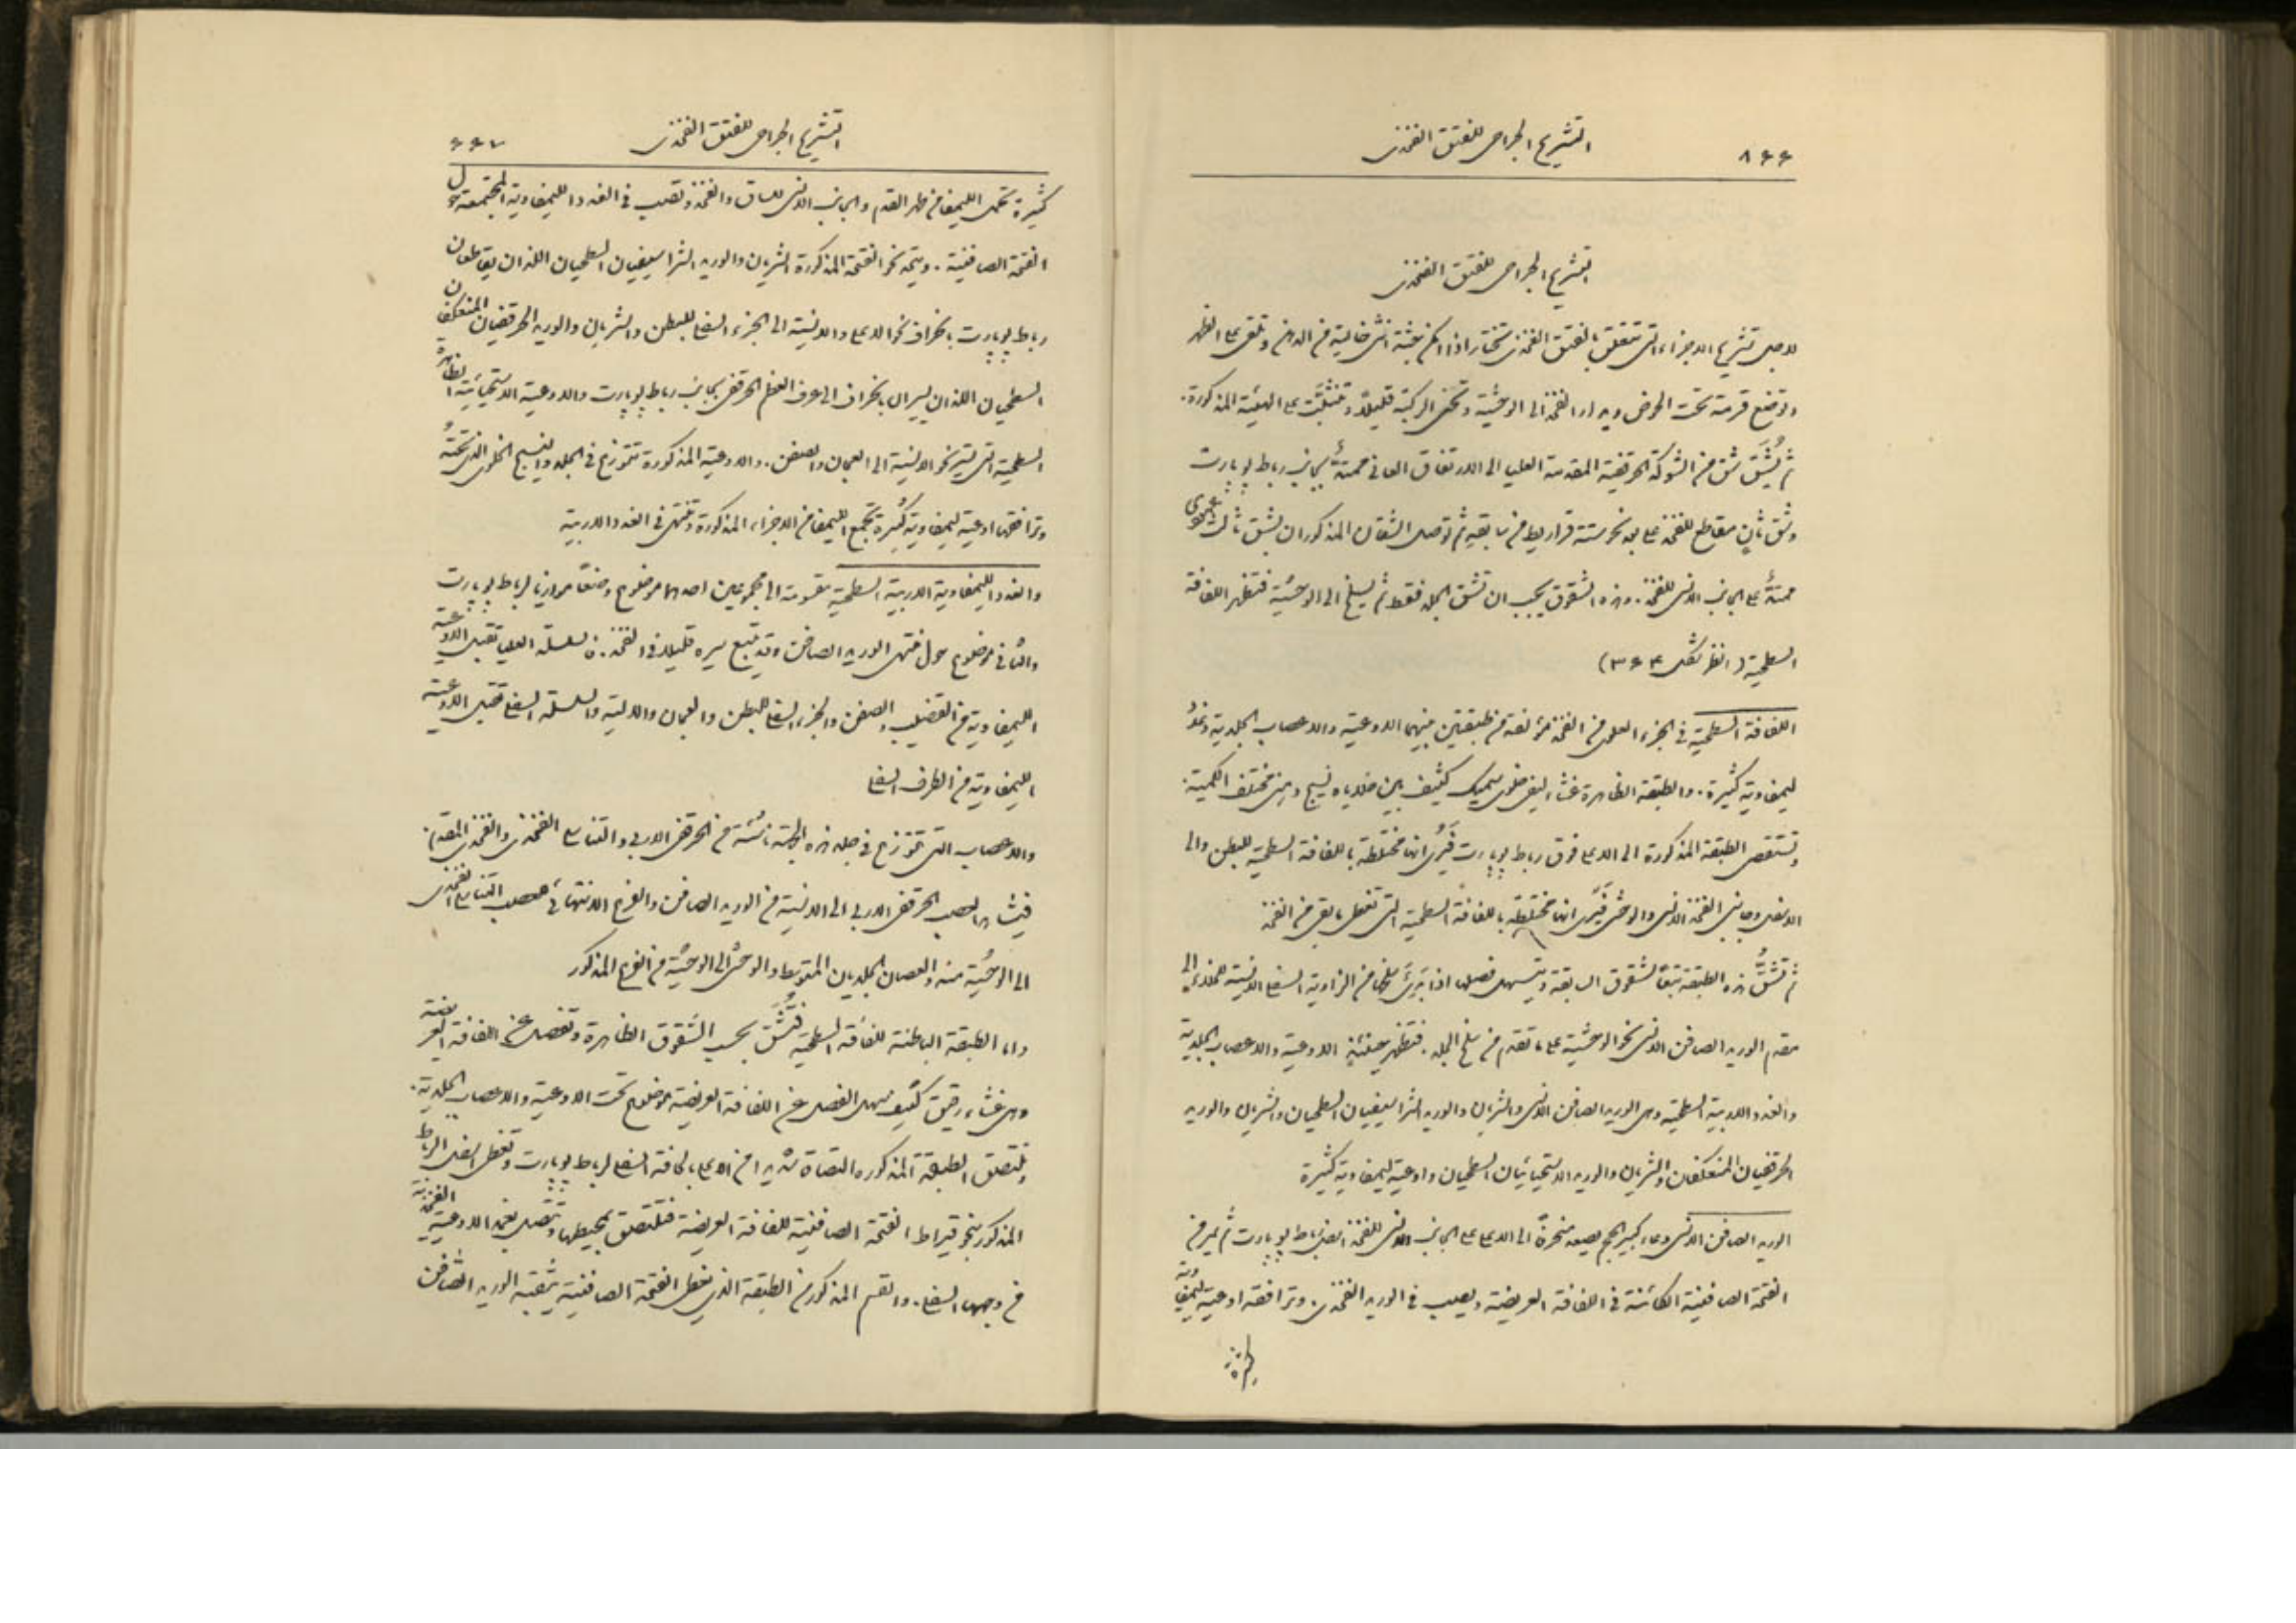 ٨٤٤
التشريح الجراحي للفتق الفخذي
تشريح الجراحي للفتق الفخذي
لاجل تشريح الاجزاء التي تتعلق بالفتق الفخذي تختار اذا امكن جثة انثى خالية من الدهن وتلقى على الظهر
وتوضع قرمة تحت الحوض ويدار الفخذ الى الوحشية وتحنى الركبة قليلاً وتثبت على الهيئة المذكورة.
ثم يُشَق شق من الشوكة الحرقفية المقدمة العليا الى الارتفاق العاني ممتدًّا بجانب رباط لوبارت
وشق ثانٍ مقاطع للفخذ على بعد نحو ستة قراريط من سابقه ثم توصل الشقان المذكوران بشق ثالث عمودي
ممتدًّا على الجانب الانسي للفخذ. وهذه الشقوق يجب ان تشق الجلد فقط ثم يسلخ الى الوحشية فتظهر اللفافة
السطحية (انظر شكل ٣٤٤)
اللفافة السطحية في الجزء العلوي من الفخذ مؤلفة من طبقتين بينهما الاوعية والاعصاب الجلدية وغدد
ليمفاوية كثيرة. والطبقة الظاهرة غشاء ليفي خلوي سميك كثيف بين خلاياه نسيج دهني مختلف الكمية.
وتستقصى الطبقة المذكورة الى الاعلى فوق رباط لوبارت فيُرى انها مختلطة باللفافة السطحية للبطن والى
الاسفل وجانبي الفخذ الانسي والوحشي فيُرى انها مختلطة باللفافة السطحية التي تغطي ما بقي من الفخذ
ثم تُشَقُّ هذه الطبقة تبعًا للشقوق السابقة ويتسهل فصلها اذا بُدِئَ بسلخها من الزاوية السفلى الانسية للفخذ الى
مقدم الوريد الصافن الانسي نحو الوحشية على ما تقدم من سلخ الجلد. فتظهر حينئذٍ الاوعية والاعصاب الجلدية
والغدد الاربية السطحية وهي الوريد الصافن الانسي والشريان والوريد الشراسيفيان السطحيان والشريان والوريد
الحرقفيان المنعكفان والشريان والوريد الاستحيائيان السطحيان واوعية ليمفاوية كثيرة
الوريد الصافن الانسي وعاء كبير الحجم يصعد منحرفًا الى الاعلى على الجانب الانسي للفخذ اسفل رباط لوبارت ثم يمر في
الفتحة الصافنية الكائنة في اللفافة العريضة ويصب في الوريد الفخذي. وترافقه اوعية ليمفاوية
كثيرة
التشريح الجراحي للفتق الفخذي
٤٤٧
كثيرة تحمل الليمفا من ظهر القدم والجانب الانسي للساق والفخذ وتصب في الغدد الليمفاوية المجتمعة حول
الفتحة الصافنية. ويتجه نحو الفتحة المذكورة الشريان والوريد الشراسيفيان السطحيان اللذان يقاطعان
رباط لوبارت بانحراف نحو الاعلى والانسية الى الجزء السفلي للبطن والشريان والوريد الحرقفيان المنعكفان
السطحيان اللذان يسيران بانحراف الى عرف العظم الحرقفي بجانب رباط لوبارت والاوعية الاستحيائية الظاهرة
السطحية التي تسير نحو الانسية الى العجان والصفن. والاوعية المذكورة تتوزع في الجلد والنسيج الخلوي الذي تحتهُ
وترافقها اوعية ليمفاوية كثيرة تجمع الليمفا من الاجزاء المذكورة وتنتهي في الغدد الاربية
والغدد الليمفاوية الاربية السطحية مقسومة الى مجموعين احدهما موضوع وضعًا موازيا لرباط لوبارت
والثاني موضوع حول منتهى الوريد الصافن وقد يتبع سيره قليلا في الفخذ. فالسلسلة العليا تقبل الاوعية
الليمفاوية من القضيب والصفن والجزء السفلي للبطن والعجان والالية والسلسلة السفلى تقبل الاوعية
الليمفاوية من الطرف السفلي
والاعصاب التي تتوزع في جلد هذه الجهة ناشئة من الحرقفي الاربي والتناسلي الفخذي والفخذي المقدم.
فيشاهد العصب الحرقفي الاربي الى الانسية من الوريد الصافن والفرع الانتهائي لعصب التناسلي الفخذي
الى الوحشية منه والعصبان الجلديان المتوسط والوحشي الى الوحشية من الفرع المذكور
واما الطبقة الباطنة للفافة السطحية فتُشَق بحسب الشقوق الظاهرة وتفصل عن اللفافة العريضة
وهي غشاء رقيق كثيف سهل الفصل عن اللفافة العريضة موضوع تحت الاوعية والاعصاب الجلدية.
وتلتصق الطبقة المذكورة التصاقا شديدا من الاعلى بالحافة السفلى لرباط لوبارت وتغطي اسفل الرباط
المذكور بنحو قيراط الفتحة الصافنية للفافة العريضة فتلتصق بمحيطها وتتصل بغمد الاوعية الفخذية
في وجهها السفلي. والقسم المذكور من الطبقة الذي يغطي الفتحة الصافنية يثقبه الوريد الصافن